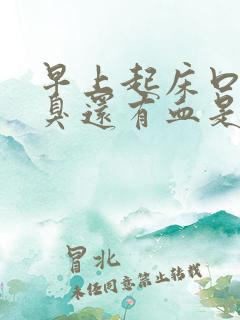 早上起床口
臭还有血是
冒北
未经同意禁止转载